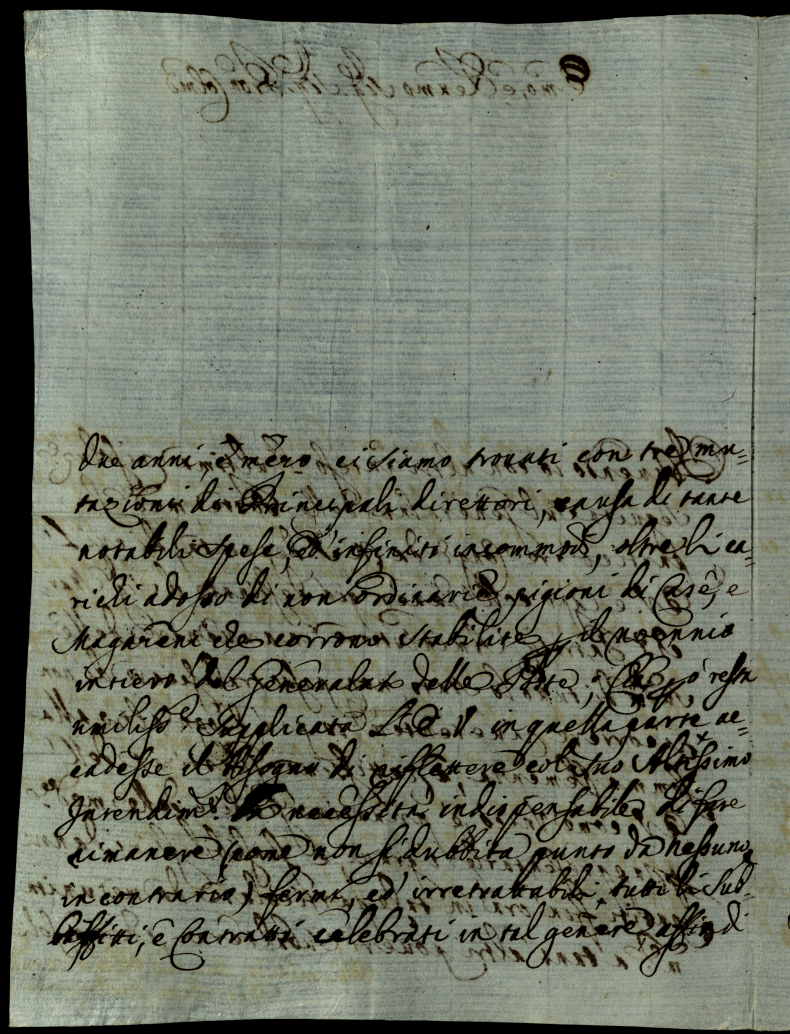 due anni, e mezo ci siamo trouati con tre mu-
tazioni di Principali direttori, causa di tante
notabili spese, ed' infiniti incommodi, oltre li ca-
richi adosso di non ordinarie pigioni di Case, e
Magazeni che corrono stabilite il nouennio
intiero del Generalat delle Poste, resta
umiliss.te supplicata L'E. V. in quella parte ac-
cadesse il bisogno di riflettere col suo Altissimo
Intendim.to necessità indispensabile di fare
rimanere (come non si dubbita punto da nessuno
in contrario) fermi, ed' irretrattabili, tutti li Sub-
baffitti, e Contratti celebrati in tal genere affin di